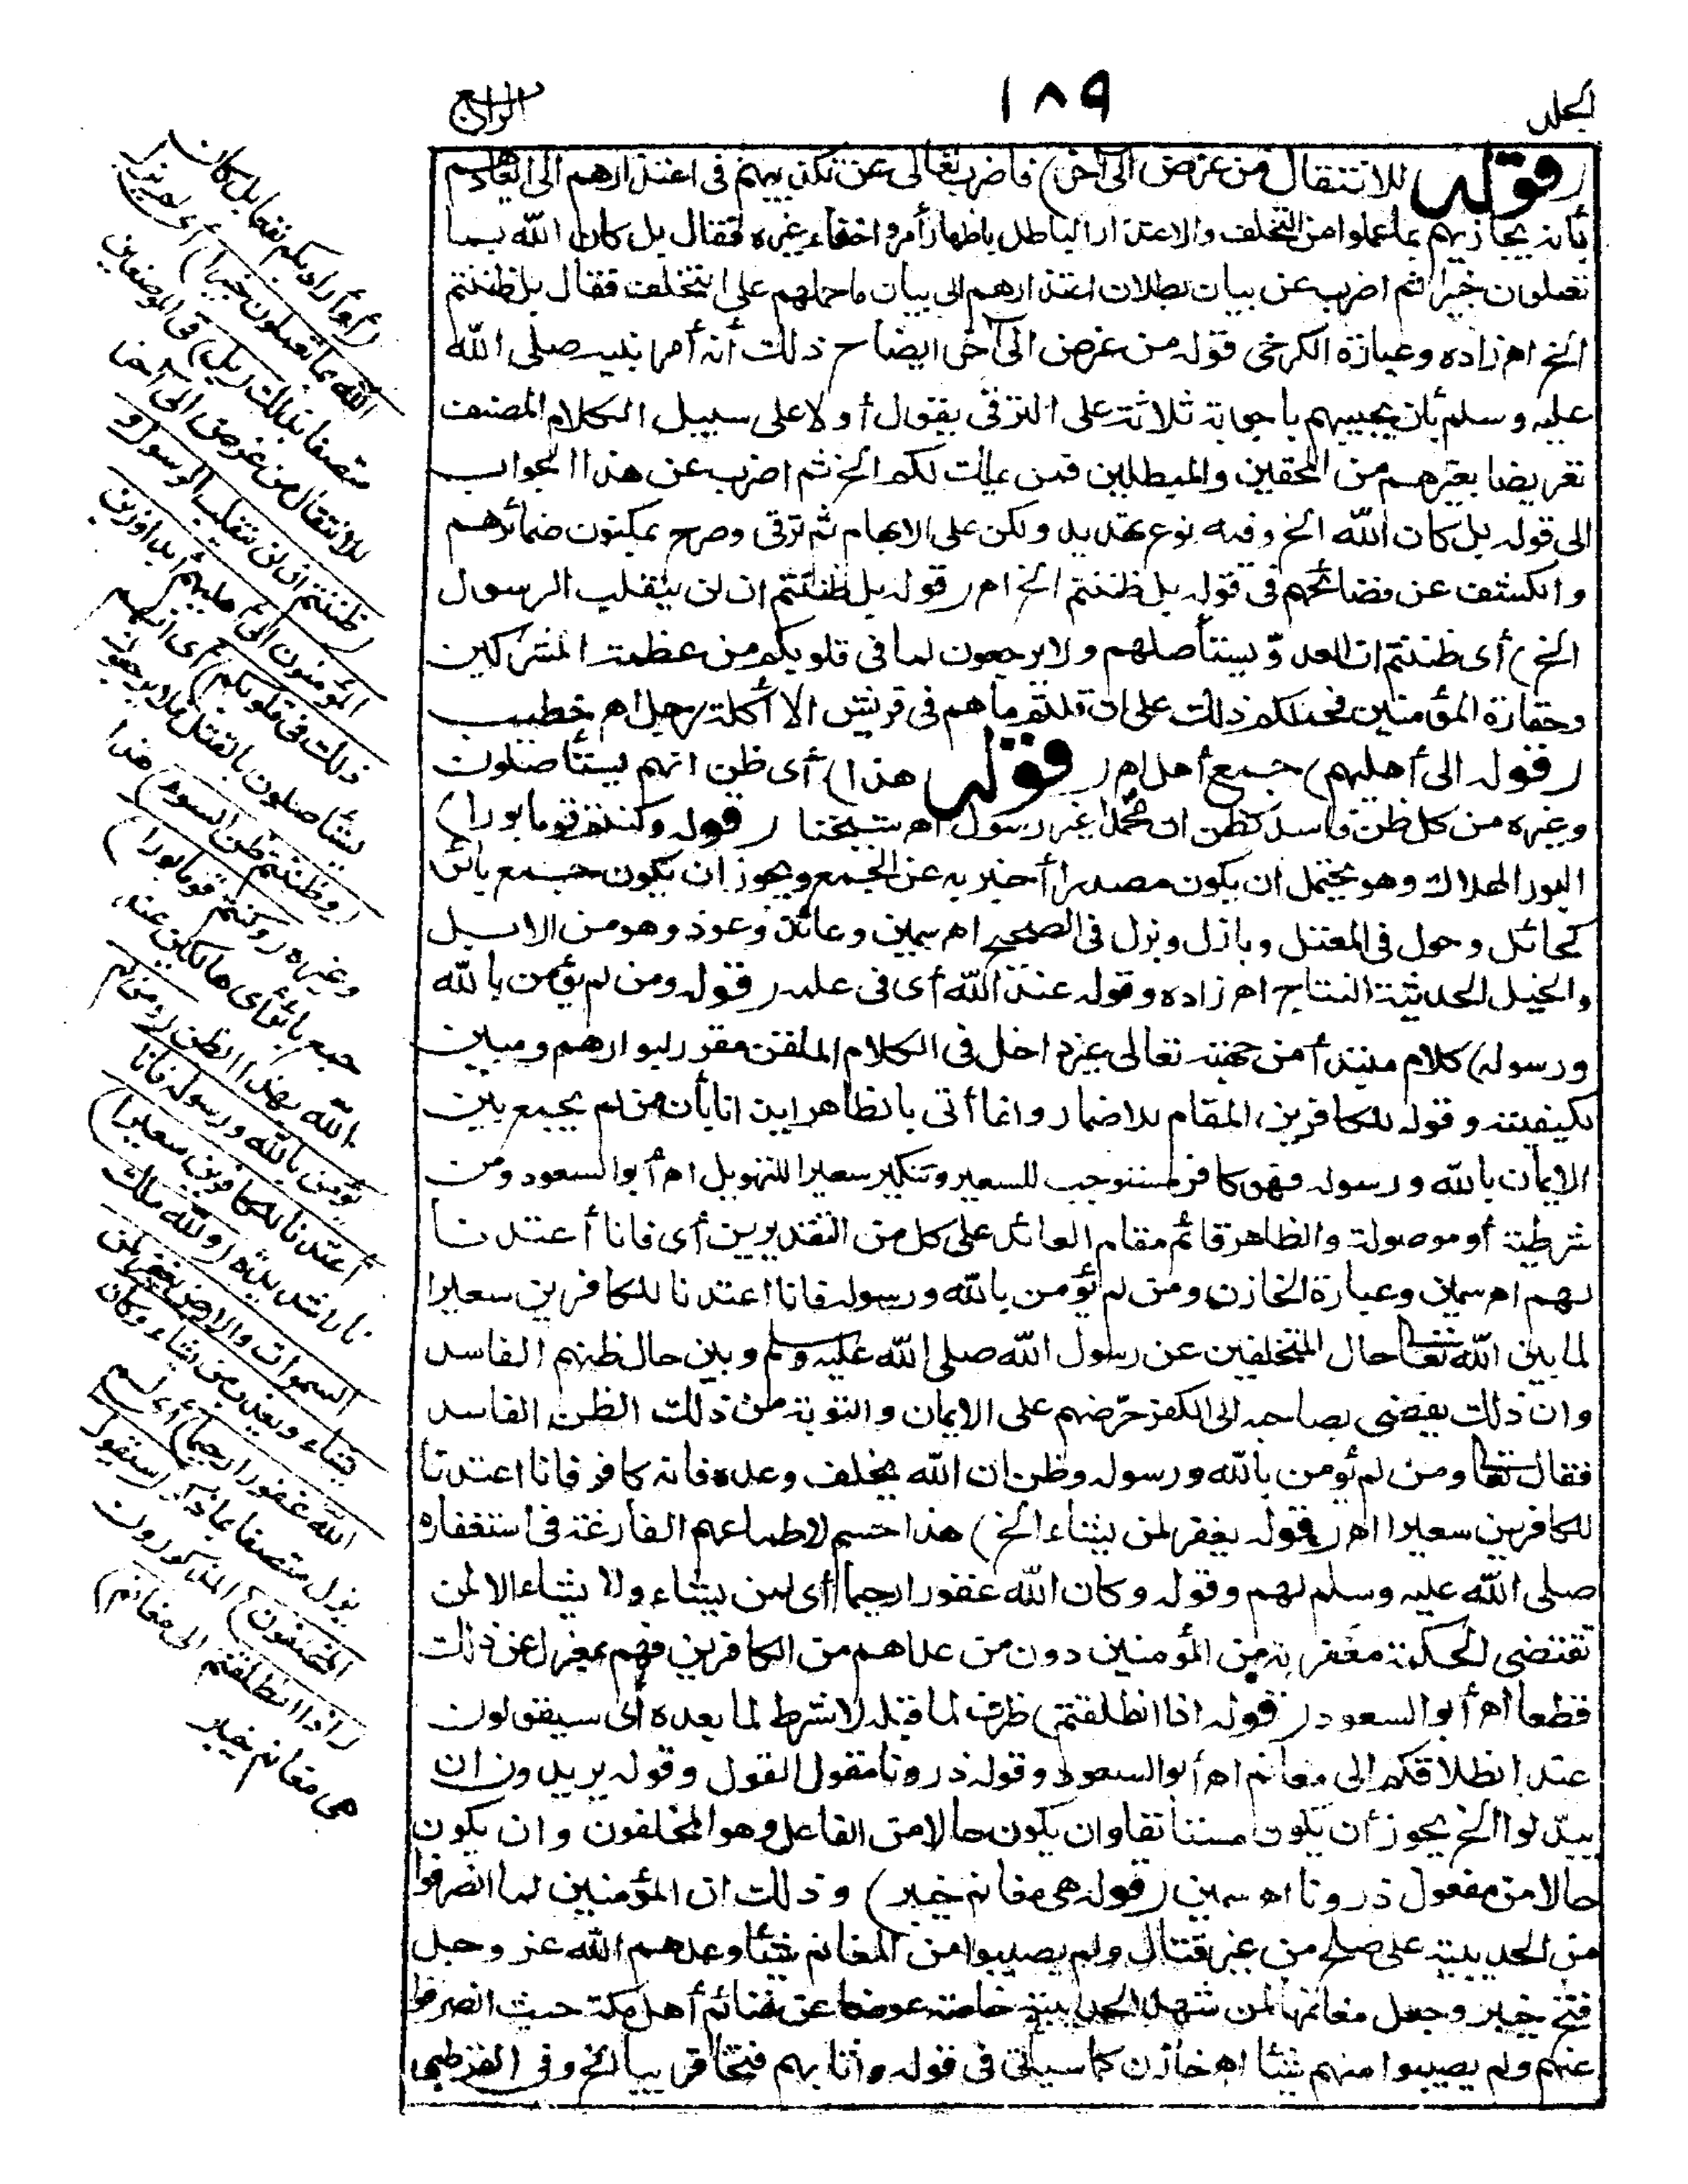 الجلد
١٨٩
الرابع
(قوله للانتقال من غرض الى آخر) فاضرب تعالى عن تكذيبهم فى اعتذارهم الى ايعادهم
بأنه يجازيهم بما عملوا من التخلف والاعتذار الباطل باظهار أمر واخفاء غيره فقال بل كان الله بما
تعملون خبيرا ثم اضرب عن بيان بطلان اعتذارهم الى بيان ما حملهم على التخلف فقال بل ظننتم
الخ اه زاده وعبارة الكرخى قوله من غرض الى آخر ايضاح ذلك أنه أمر نبيه صلى الله
عليه وسلم بأن يجيبهم باجوبة ثلاثة على الترقى يقول أولا على سبيل الكلام المصنف
تعريضا بغيرهم من المحقين والمبطلين فمن يملك لكم الخ ثم اضرب عن هذا الجواب
الى قوله بل كان الله الخ وفيه نوع تهديد ولكن على الابهام ثم ترقى وصرح بمكنون ضمائرهم
والكشف عن فضائحهم فى قوله بل ظننتم الخ اه (قوله بل ظننتم ان لن ينقلب الرسول
الخ) أى ظننتم ان العدو يستأصلهم ولا يرجعون لما فى قلوبكم من عظمة المشركين
وحقارة المؤمنين فحملكم ذلك على ان قلتم ما هم فى قريش الا أكلة رجل اه خطيب
(قوله الى أهليهم) جمع أهل اه (قوله هذا) أى ظن انهم يستأصلون
وغيره من كل ظن فاسد كظن ان محمدا غير رسول اه شيخنا (قوله وكنتم قوما بورا)
البور الهلاك وهو يحتمل ان يكون مصدرا أخبر به عن الجمع ويجوز ان يكون جمع بائر
كحائل وحول فى المعتل وبازل وبزل فى الصحيح اه سمين وعائذ وعوذ وهو من الابل
والخيل الحديثة النتاج اه زاده وقوله عند الله أى فى علمه (قوله ومن لم يؤمن بالله
ورسوله) كلام مبتدأ من جهته تعالى غير داخل فى الكلام الملقن مقرر لبوارهم ومبين
لكيفيته وقوله للكافرين المقام للاضمار وانما أتى بالظاهر ايذانا بأن من لم يجمع بين
الايمان بالله ورسوله فهو كافر مستوجب للسعير وتنكير سعيرا للتهويل اه أبو السعود ومن
شرطية أو موصولة والظاهر قائم مقام العائد على كل من التقديرين أى فانا أعتدنا
لهم اه سمين وعبارة الخازن ومن لم يؤمن بالله ورسوله فانا اعتدنا للكافرين سعيرا
لما بين الله تعالى حال المتخلفين عن رسول الله صلى الله عليه وسلم وبين حال ظنهم الفاسد
وان ذلك يفضى بصاحبه الى الكفر حرّضهم على الايمان والتوبة من ذلك الظن الفاسد
فقال تعالى ومن لم يؤمن بالله ورسوله وظن ان الله يخلف وعده فانه كافر فانا اعتدنا
للكافرين سعيرا اه (قوله يغفر لمن يشاء الخ) هذا حسم لاطماعهم الفارغة فى استغفاره
صلى الله عليه وسلم لهم وقوله وكان الله غفورا رحيما أى لمن يشاء ولا يشاء الا لمن
تقتضى الحكمة مغفرته من المؤمنين دون من عداهم من الكافرين فهم بمعزل عن ذلك
قطعا اه أبو السعود (قوله اذا انطلقتم) ظرف لما قبله لا شرط لما بعده أى سيقولون
عند انطلاقكم الى مغانم اه أبو السعود وقوله ذرونا مقول القول وقوله يريدون ان
يبدّلوا الخ يجوز أن يكون مستأنفا وان يكون حالا من الفاعل وهو المخلفون وان يكون
حالا من مفعول ذرونا اه سمين (قوله هى مغانم خيبر) وذلك ان المؤمنين لما انصرفوا
من الحديبية على صلح من غير قتال ولم يصيبوا من المغانم شيئا وعدهم الله عز وجل
فتح خيبر وجعل مغانمها لمن شهد الحديبية خاصة عوضا عن غنائم أهل مكة حيث انصرفوا
عنهم ولم يصيبوا منهم شيئا اه خازن كما سيأتى فى قوله وأثابهم فتحا قريبا الخ وفى القرطبى
(أو أراد بكم نفعا بل كان
الله بما تعملون خبيرا) أى لم يزل
متصفا بذلك (بل) فى الموضعين
للانتقال من غرض الى آخر
(ظننتم ان لن ينقلب الرسول و
المؤمنون الى أهليهم أبدا وزين
ذلك فى قلوبكم) أى انهم
يستأصلون بالقتل فلا يرجعون
(وظننتم ظن السوء) هذا
وغيره (وكنتم قوما بورا)
جمع بائر أى هالكين عند
الله بهذا الظن (ومن لم
يؤمن بالله ورسوله فانا
أعتدنا للكافرين سعيرا)
نارا شديدة (ولله ملك
السموات والارض يغفر لمن
يشاء ويعذب من يشاء وكان
الله غفورا رحيما) أى لم
يزل متصفا بما ذكر (سيقول
المخلفون) المذكورون
(اذا انطلقتم الى مغانم)
هى مغانم خيبر